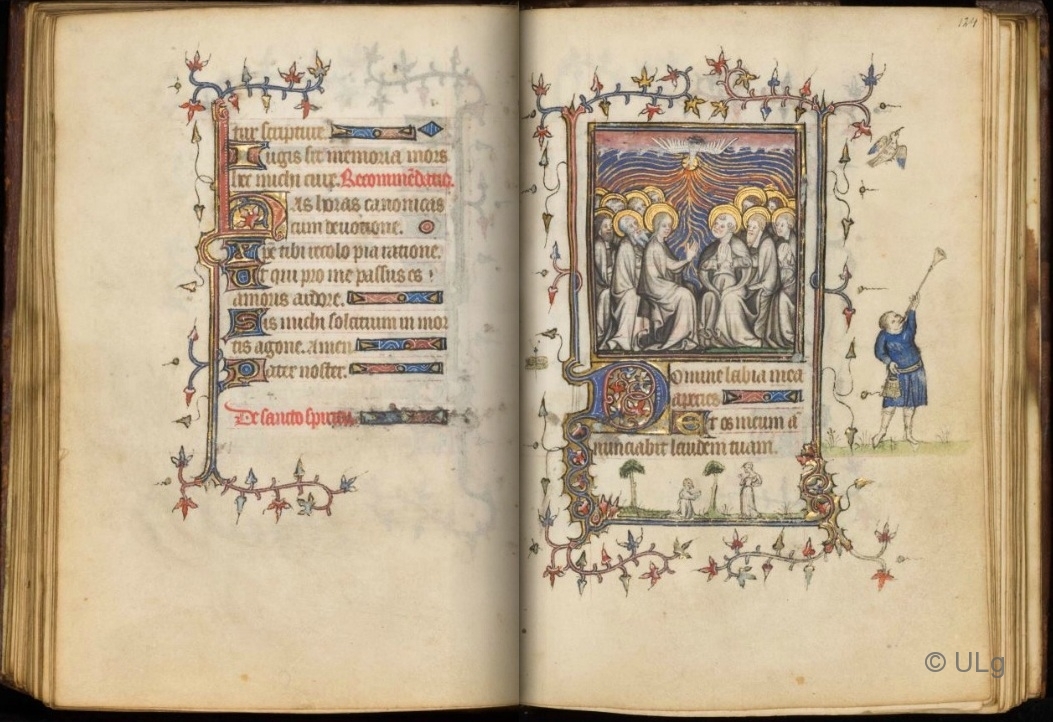 tur scripture.
Iugis sit memoria mors
hec michi crux. Recommēdatio.
Has horas canonicas
cum deuotione.
Xpe tibi recolo pia ratione.
Ut qui pro me passus es
amoris ardore.
Sis michi solatium in mor
tis agone. Amen
Pater noster.
De sancto spiritu
124
Domine labia mea
aperies
Et os meum ā
nunciabit laudem tuam.
© ULg